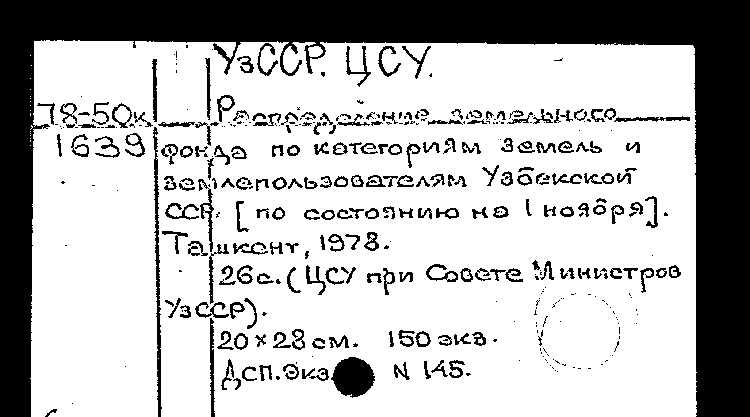 УзССР. ЦСУ.
78-50к Распределение земельного
1639 фонда по категориям земель и
землепользователям Узбекской
ССР. [по состоянию на 1 ноября].
Ташкент, 1978.
26с. (ЦСУ при Совете Министров
УзССР).
20×28см. 150 экз.
ДСП. Экз. N 145.